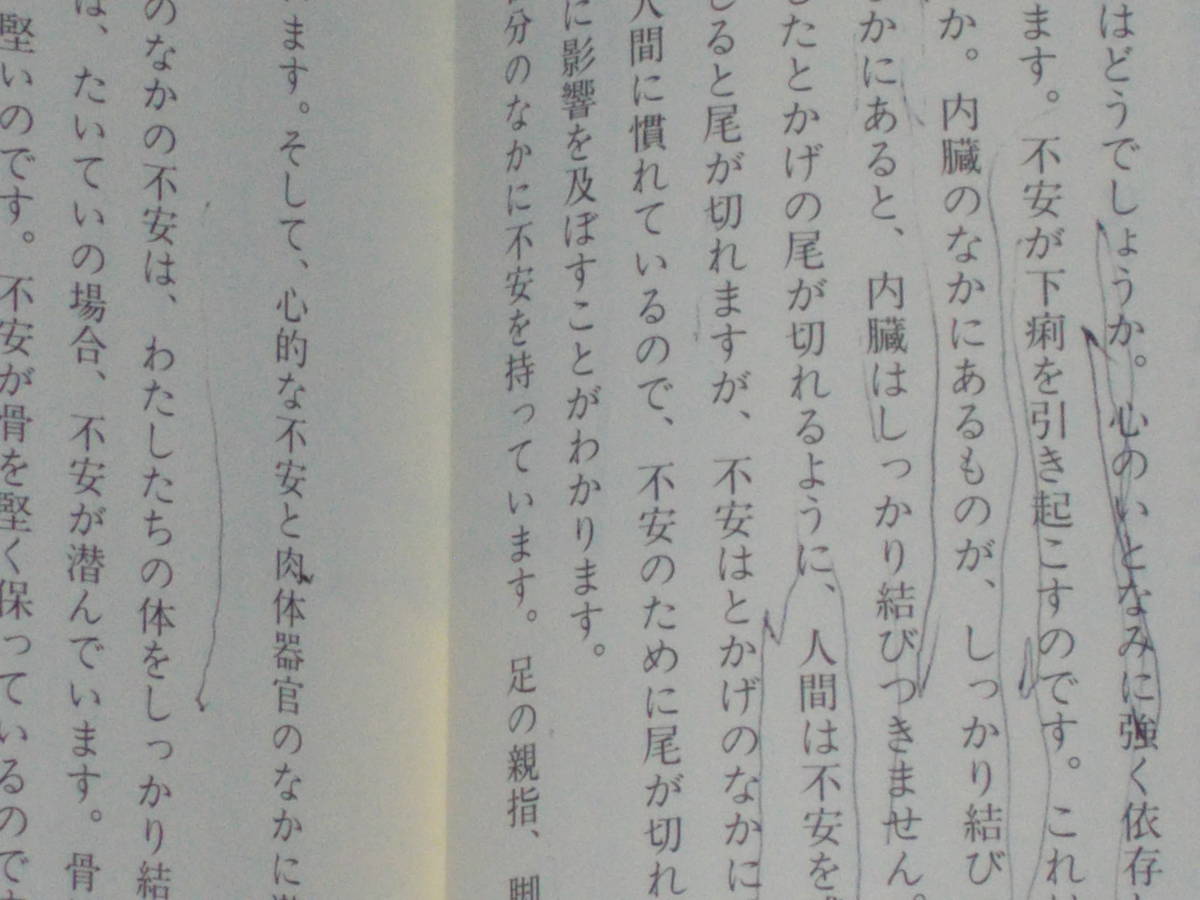 はどうでしょうか。心のいとなみに強く依存
ます。不安が下痢を引き起こすのです。これ
か。内臓のなかにあるものが、しっかり結び
かにあると、内臓はしっかり結びつきません。
したとかげの尾が切れるように、人間は不安を
じると尾が切れますが、不安はとかげのなかに
人間に慣れているので、不安のために尾が切れ
に影響を及ぼすことがわかります。
分のなかに不安を持っています。足の親指、脚
ます。そして、心的な不安と肉体器官のなかに
のなかの不安は、わたしたちの体をしっかり結
は、たいていの場合、不安が潜んでいます。骨
堅いのです。不安が骨を堅く保っているので